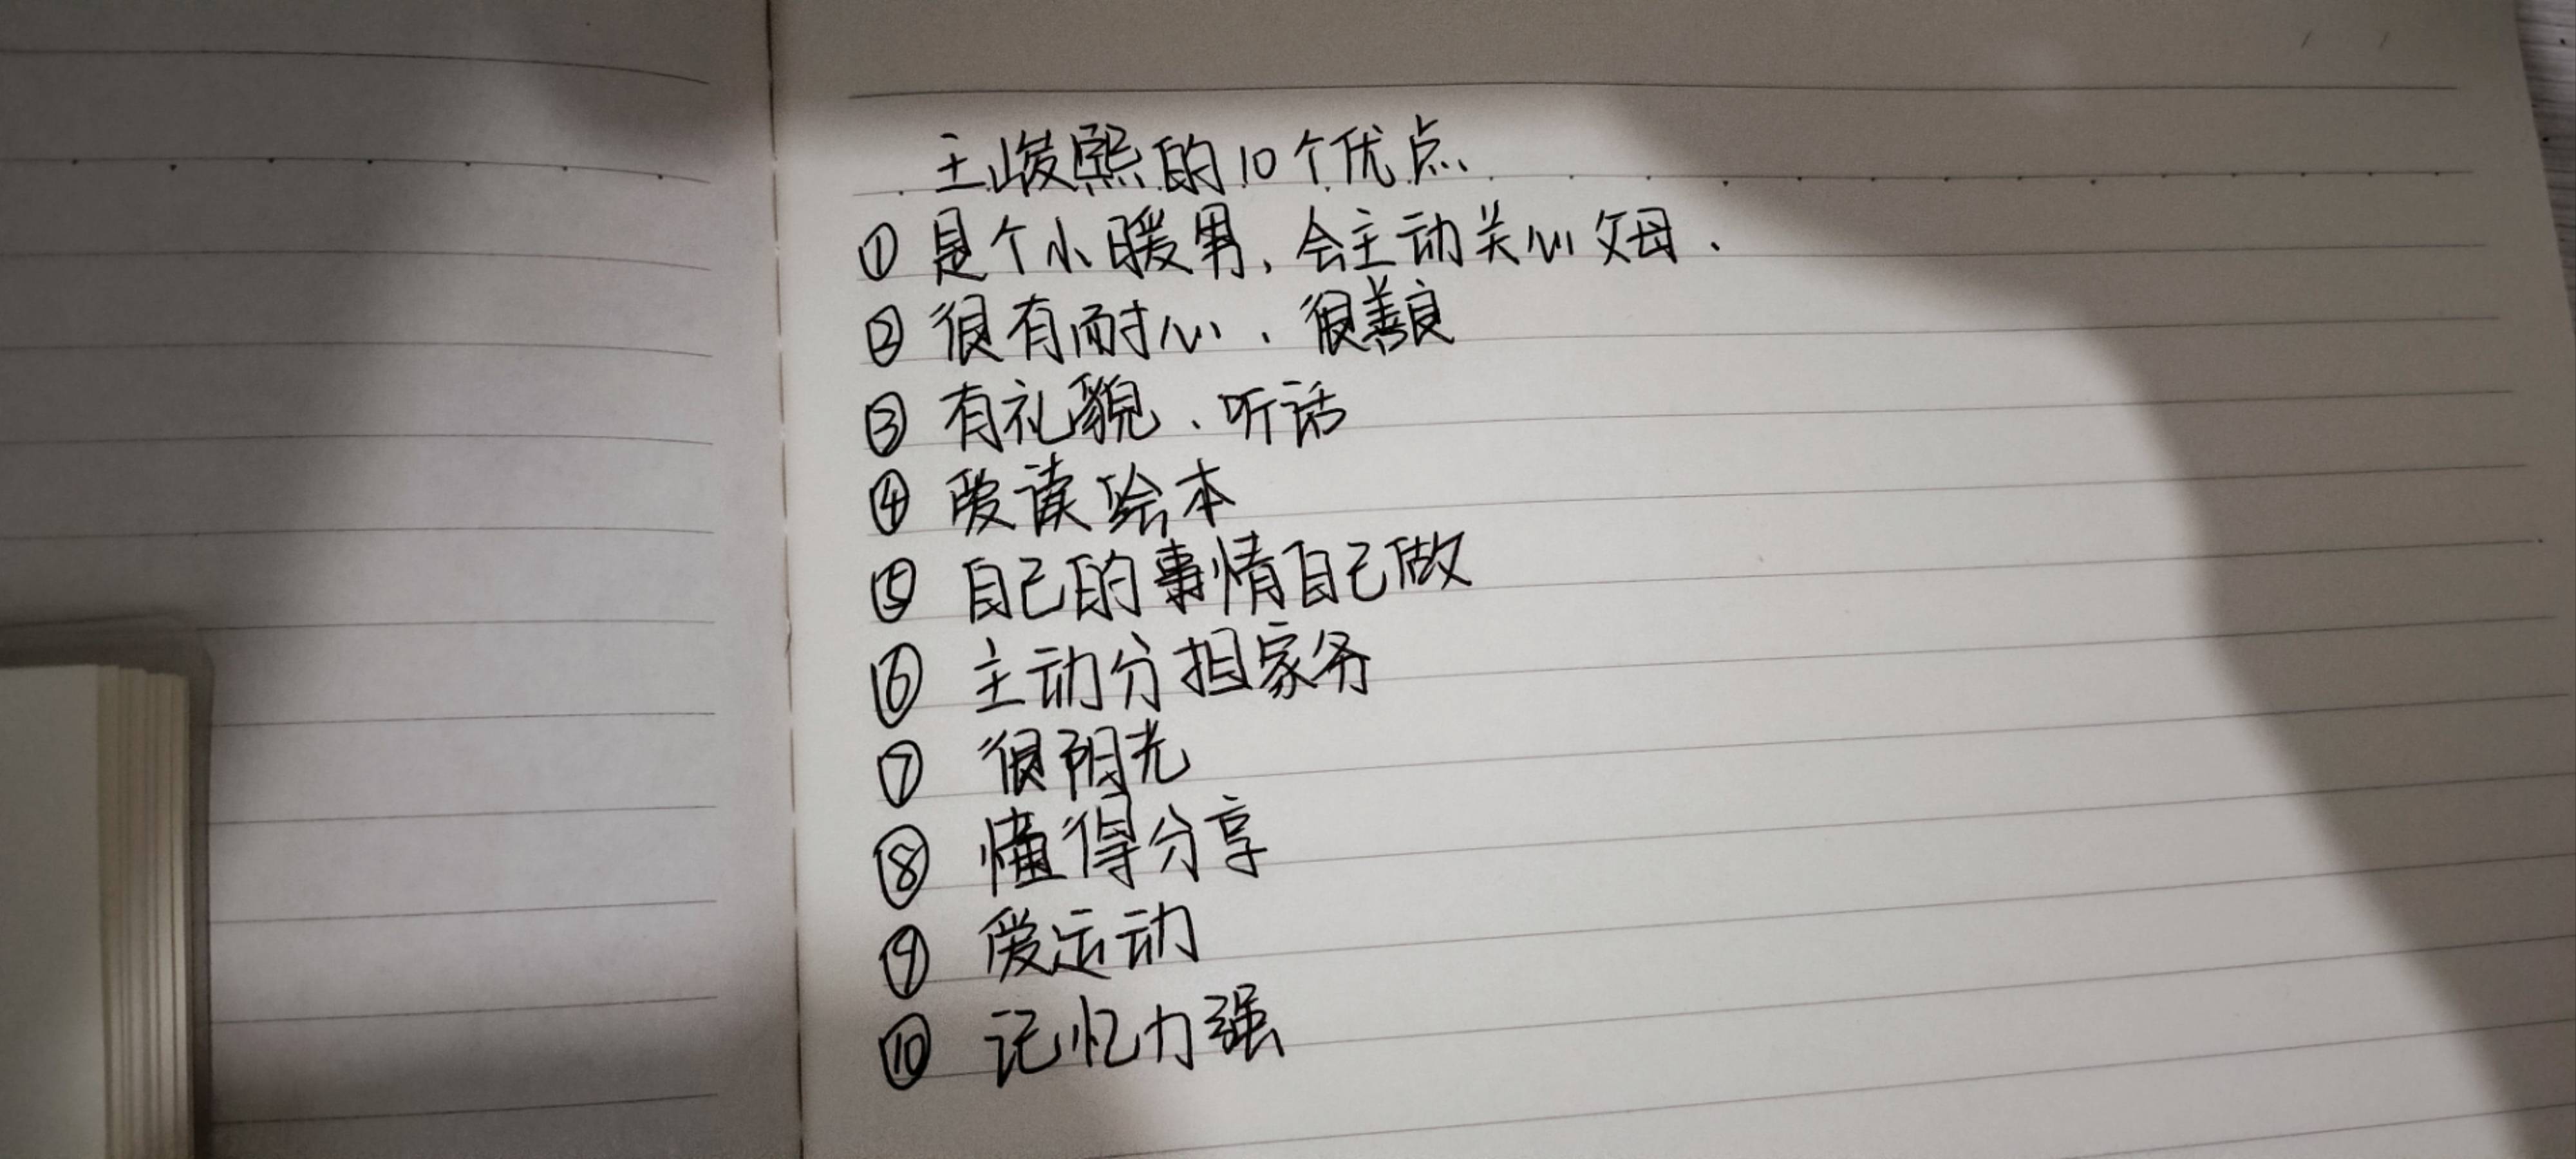 王峻熙的10个优点
① 是个小暖男,会主动关心父母.
② 很有耐心、很善良
③ 有礼貌、听话
④ 爱读绘本
⑤ 自己的事情自己做
⑥ 主动分担家务
⑦ 很阳光
⑧ 懂得分享
⑨ 爱运动
⑩ 记忆力强